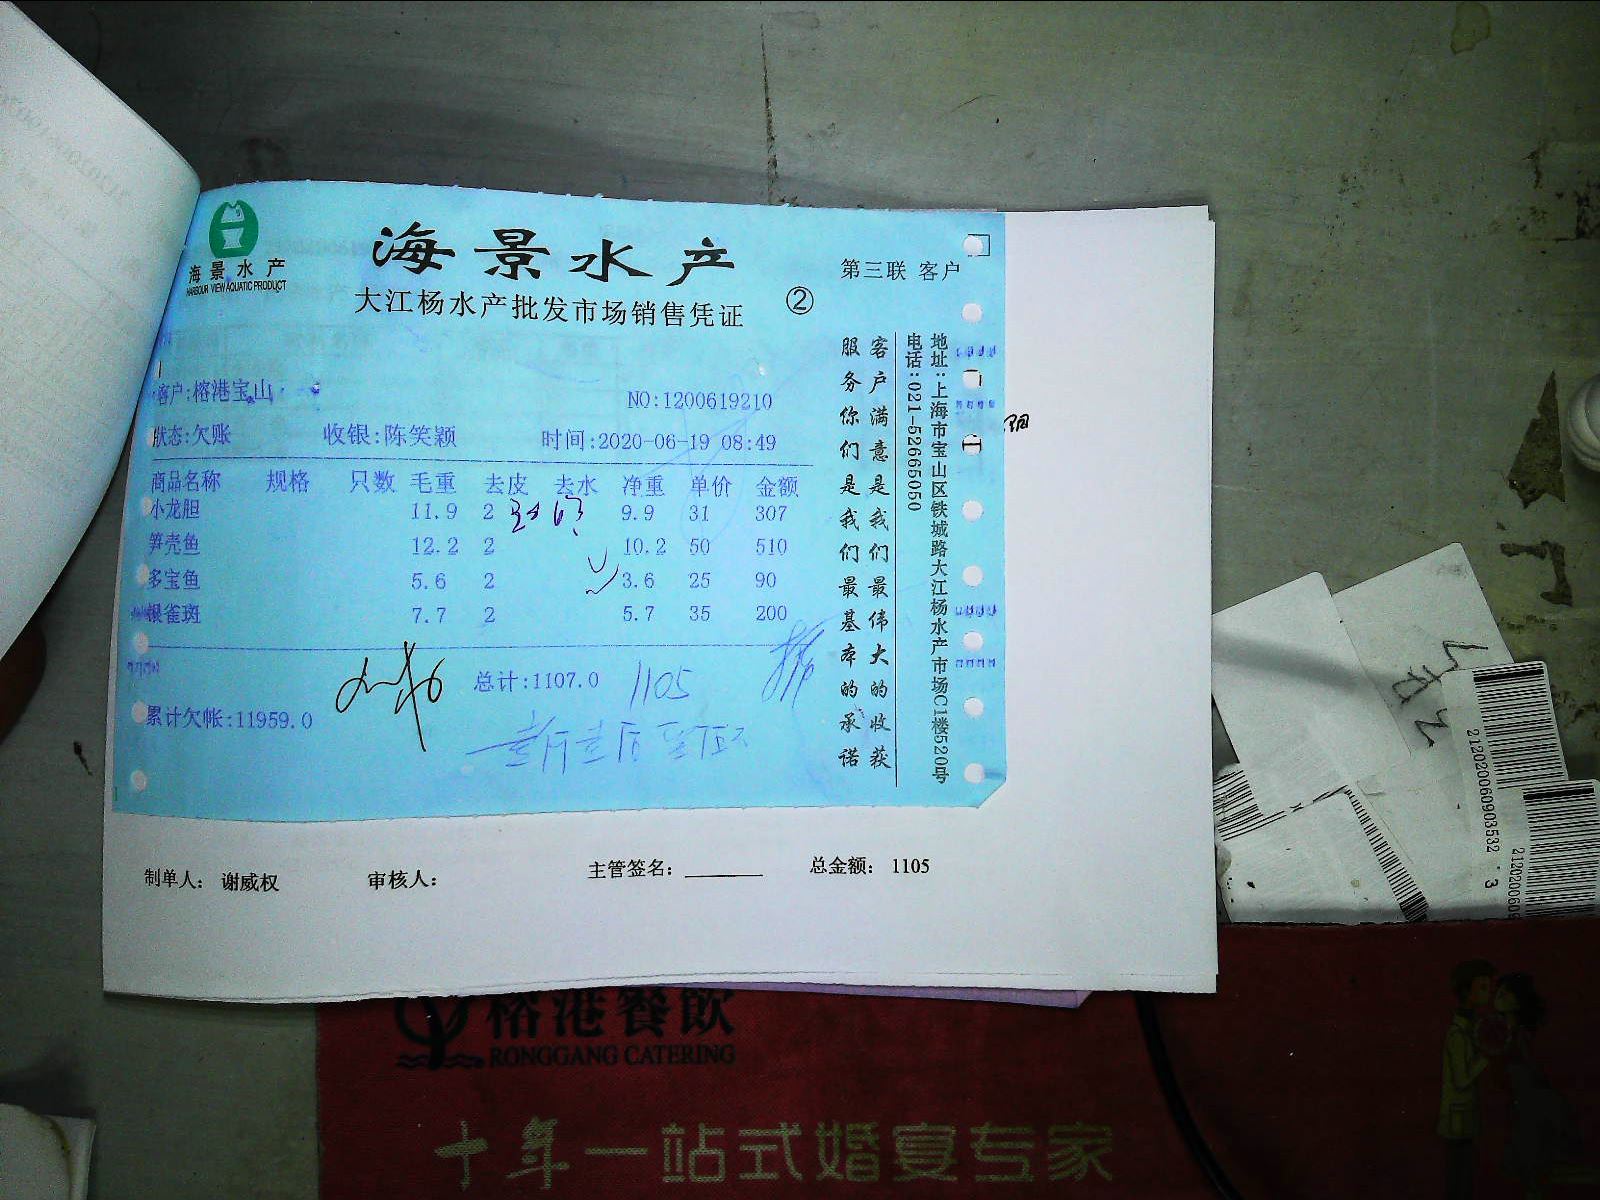 海景水产
HARBOUR VIEW AQUATIC PRODUCT
海景水产
大江杨水产批发市场销售凭证
②
第三联 客户
客户:榕港宝山
NO:1200619210
状态:欠账 收银:陈笑颖 时间:2020-06-19 08:49
商品名称 规格 只数 毛重 去皮 去水 净重 单价 金额
小龙胆 11.9 2 9.9 31 307
笋壳鱼 12.2 2 10.2 50 510
多宝鱼 5.6 2 3.6 25 90
银雀斑 7.7 2 5.7 35 200
总计:1107.0 1105
累计欠帐:11959.0
客户满意是我们最伟大的收获
服务你们是我们最基本的承诺
地址:上海市宝山区铁城路大江杨水产市场C1楼520号
电话:021-52665050
制单人: 谢威权 审核人: 主管签名: 总金额: 1105
212020060903532 3
榕港餐飲
RONGGANG CATERING
十年一站式婚宴专家